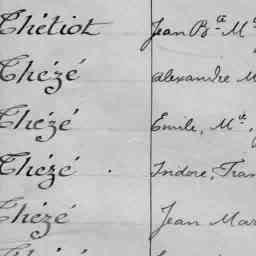 Thétiot Jean Bte Me
Thézé Alexandre M
Thézé Emile, Me,
Thézé Isidore, Fran
Thézé Jean Mar